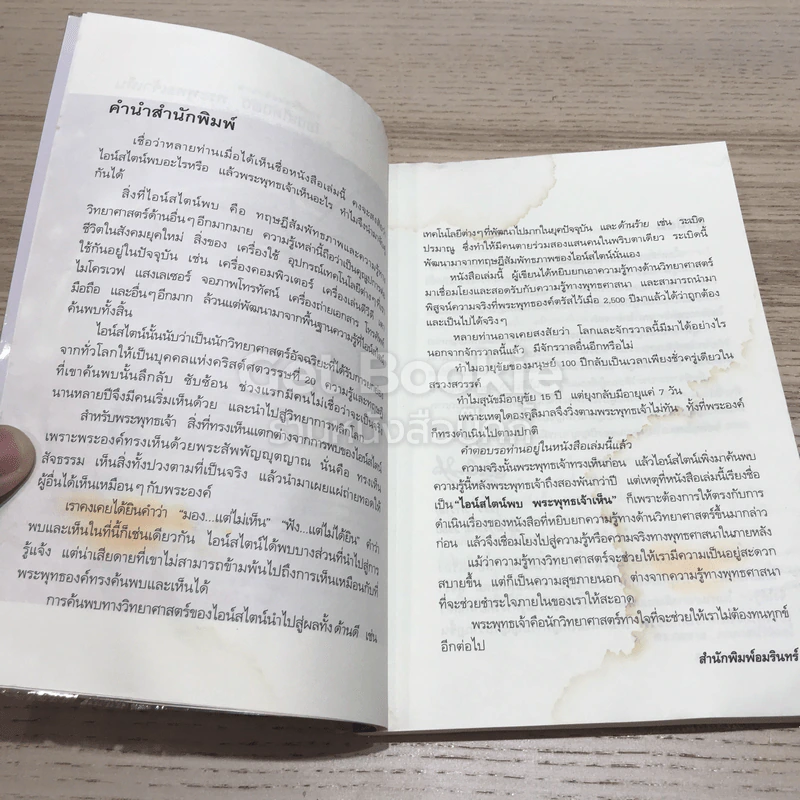 คำนำสำนักพิมพ์
เชื่อว่าหลายท่านเมื่อได้เห็นชื่อหนังสือเล่มนี้ คงจะสงสัยว่า
ไอน์สไตน์พบอะไรหรือ แล้วพระพุทธเจ้าเห็นอะไร ทำไมจึงนำมา
กันได้
สิ่งที่ไอน์สไตน์พบ คือ ทฤษฎีสัมพัทธภาพและความรู้ทาง
วิทยาศาสตร์ด้านอื่นๆอีกมากมาย ความรู้เหล่านี้ถือว่าเป็น
ชีวิตในสังคมยุคใหม่ สิ่งของ เครื่องใช้ อุปกรณ์เทคโนโลยีต่างๆ
ใช้กันอยู่ในปัจจุบัน เช่น เครื่องคอมพิวเตอร์ เครื่องเล่นดีวีดี
ไมโครเวฟ แสงเลเซอร์ จอภาพโทรทัศน์ เครื่องถ่ายเอกสาร โทรศัพท์
มือถือ และอื่นๆอีกมาก ล้วนแต่พัฒนามาจากพื้นฐานความรู้ที่ไอน์สไตน์
ค้นพบทั้งสิ้น
ไอน์สไตน์นั้นนับว่าเป็นนักวิทยาศาสตร์อัจฉริยะที่ได้รับการ
จากทั่วโลกให้เป็นบุคคลแห่งคริสต์ศตวรรษที่ ๒๐ ความรู้และทฤษฎี
ที่เขาค้นพบนั้นลึกลับ ซับซ้อน ช่วงแรกมีคนไม่เชื่อว่าจะเป็น
นานหลายปีจึงมีคนเริ่มเห็นด้วย และนำไปสู่วิทยาการ
สำหรับพระพุทธเจ้า สิ่งที่ทรงเห็นแตกต่างจากการพบของไอน์สไตน์
เพราะพระองค์ทรงเห็นด้วยพระสัพพัญญุตญาณ นั่นคือ ทรงเห็น
สัจธรรม เห็นสิ่งทั้งปวงตามที่เป็นจริง แล้วนำมาเผยแผ่ถ่ายทอดให้
ผู้อื่นได้เห็นเหมือนๆกับพระองค์
เราคงเคยได้ยินคำว่า “มอง...แต่ไม่เห็น” “ฟัง...แต่ไม่ได้ยิน” คำว่า
พบและเห็นในที่นี้ก็เช่นเดียวกัน ไอน์สไตน์ได้พบบางส่วนที่นำไปสู่การ
รู้แจ้ง แต่น่าเสียดายที่เขาไม่สามารถข้ามพ้นไปถึงการเห็นเหมือนกับที่
พระพุทธองค์ทรงค้นพบและเห็นได้
การค้นพบทางวิทยาศาสตร์ของไอน์สไตน์นำไปสู่ผลทั้งด้านดี เช่น
เทคโนโลยีต่างๆที่พัฒนาไปมากในยุคปัจจุบัน และด้านร้าย เช่น ระเบิด
ปรมาณู ซึ่งทำให้มีคนตายร่วมสองแสนคนในพริบตาเดียว ระเบิดนี้
พัฒนามาจากทฤษฎีสัมพัทธภาพของไอน์สไตน์นั่นเอง
หนังสือเล่มนี้ ผู้เขียนได้หยิบยกเอาความรู้ทางด้านวิทยาศาสตร์
มาเชื่อมโยงและสอดรับกับความรู้ทางพุทธศาสนา และสามารถนำมา
พิสูจน์ความจริงที่พระพุทธองค์ตรัสไว้เมื่อ 2,500 ปีมาแล้วได้ว่าถูกต้อง
และเป็นไปได้จริงๆ
หลายท่านอาจเคยสงสัยว่า โลกและจักรวาลนี้มีมาได้อย่างไร
นอกจากจักรวาลนี้แล้ว มีจักรวาลอื่นอีกหรือไม่
ทำไมอายุขัยของมนุษย์ 100 ปีกลับเป็นเวลาเพียงชั่วครู่เดียวใน
สรวงสวรรค์
ทำไมสุนัขมีอายุขัย 15 ปี แต่ยุงกลับมีอายุแค่ 7 วัน
เพราะเหตุใดองคุลิมาลจึงวิ่งตามพระพุทธเจ้าไม่ทัน ทั้งที่พระองค์
ก็ทรงดำเนินไปตามปกติ
คำตอบรอท่านอยู่ในหนังสือเล่มนี้แล้ว
ความจริงนั้นพระพุทธเจ้าทรงเห็นก่อน แล้วไอน์สไตน์เพิ่งมาค้นพบ
ความรู้นี้หลังพระพุทธเจ้าถึงสองพันกว่าปี แต่เหตุที่หนังสือเล่มนี้เรียงชื่อ
เป็น “ไอน์สไตน์พบ พระพุทธเจ้าเห็น” ก็เพราะต้องการให้ตรงกับการ
ดำเนินเรื่องของหนังสือที่หยิบยกความรู้ทางด้านวิทยาศาสตร์ขึ้นมากล่าว
ก่อน แล้วจึงเชื่อมโยงไปสู่ความรู้หรือความจริงทางพุทธศาสนาในภายหลัง
แม้ว่าความรู้ทางวิทยาศาสตร์จะช่วยให้เรามีความเป็นอยู่สะดวก
สบายขึ้น แต่ก็เป็นความสุขภายนอก ต่างจากความรู้ทางพุทธศาสนา
ที่จะช่วยชำระใจภายในของเราให้สะอาด
พระพุทธเจ้าคือนักวิทยาศาสตร์ทางใจที่จะช่วยให้เราไม่ต้องทนทุกข์
อีกต่อไป
สำนักพิมพ์อมรินทร์
Got Bookie
ร้านหนังสือ